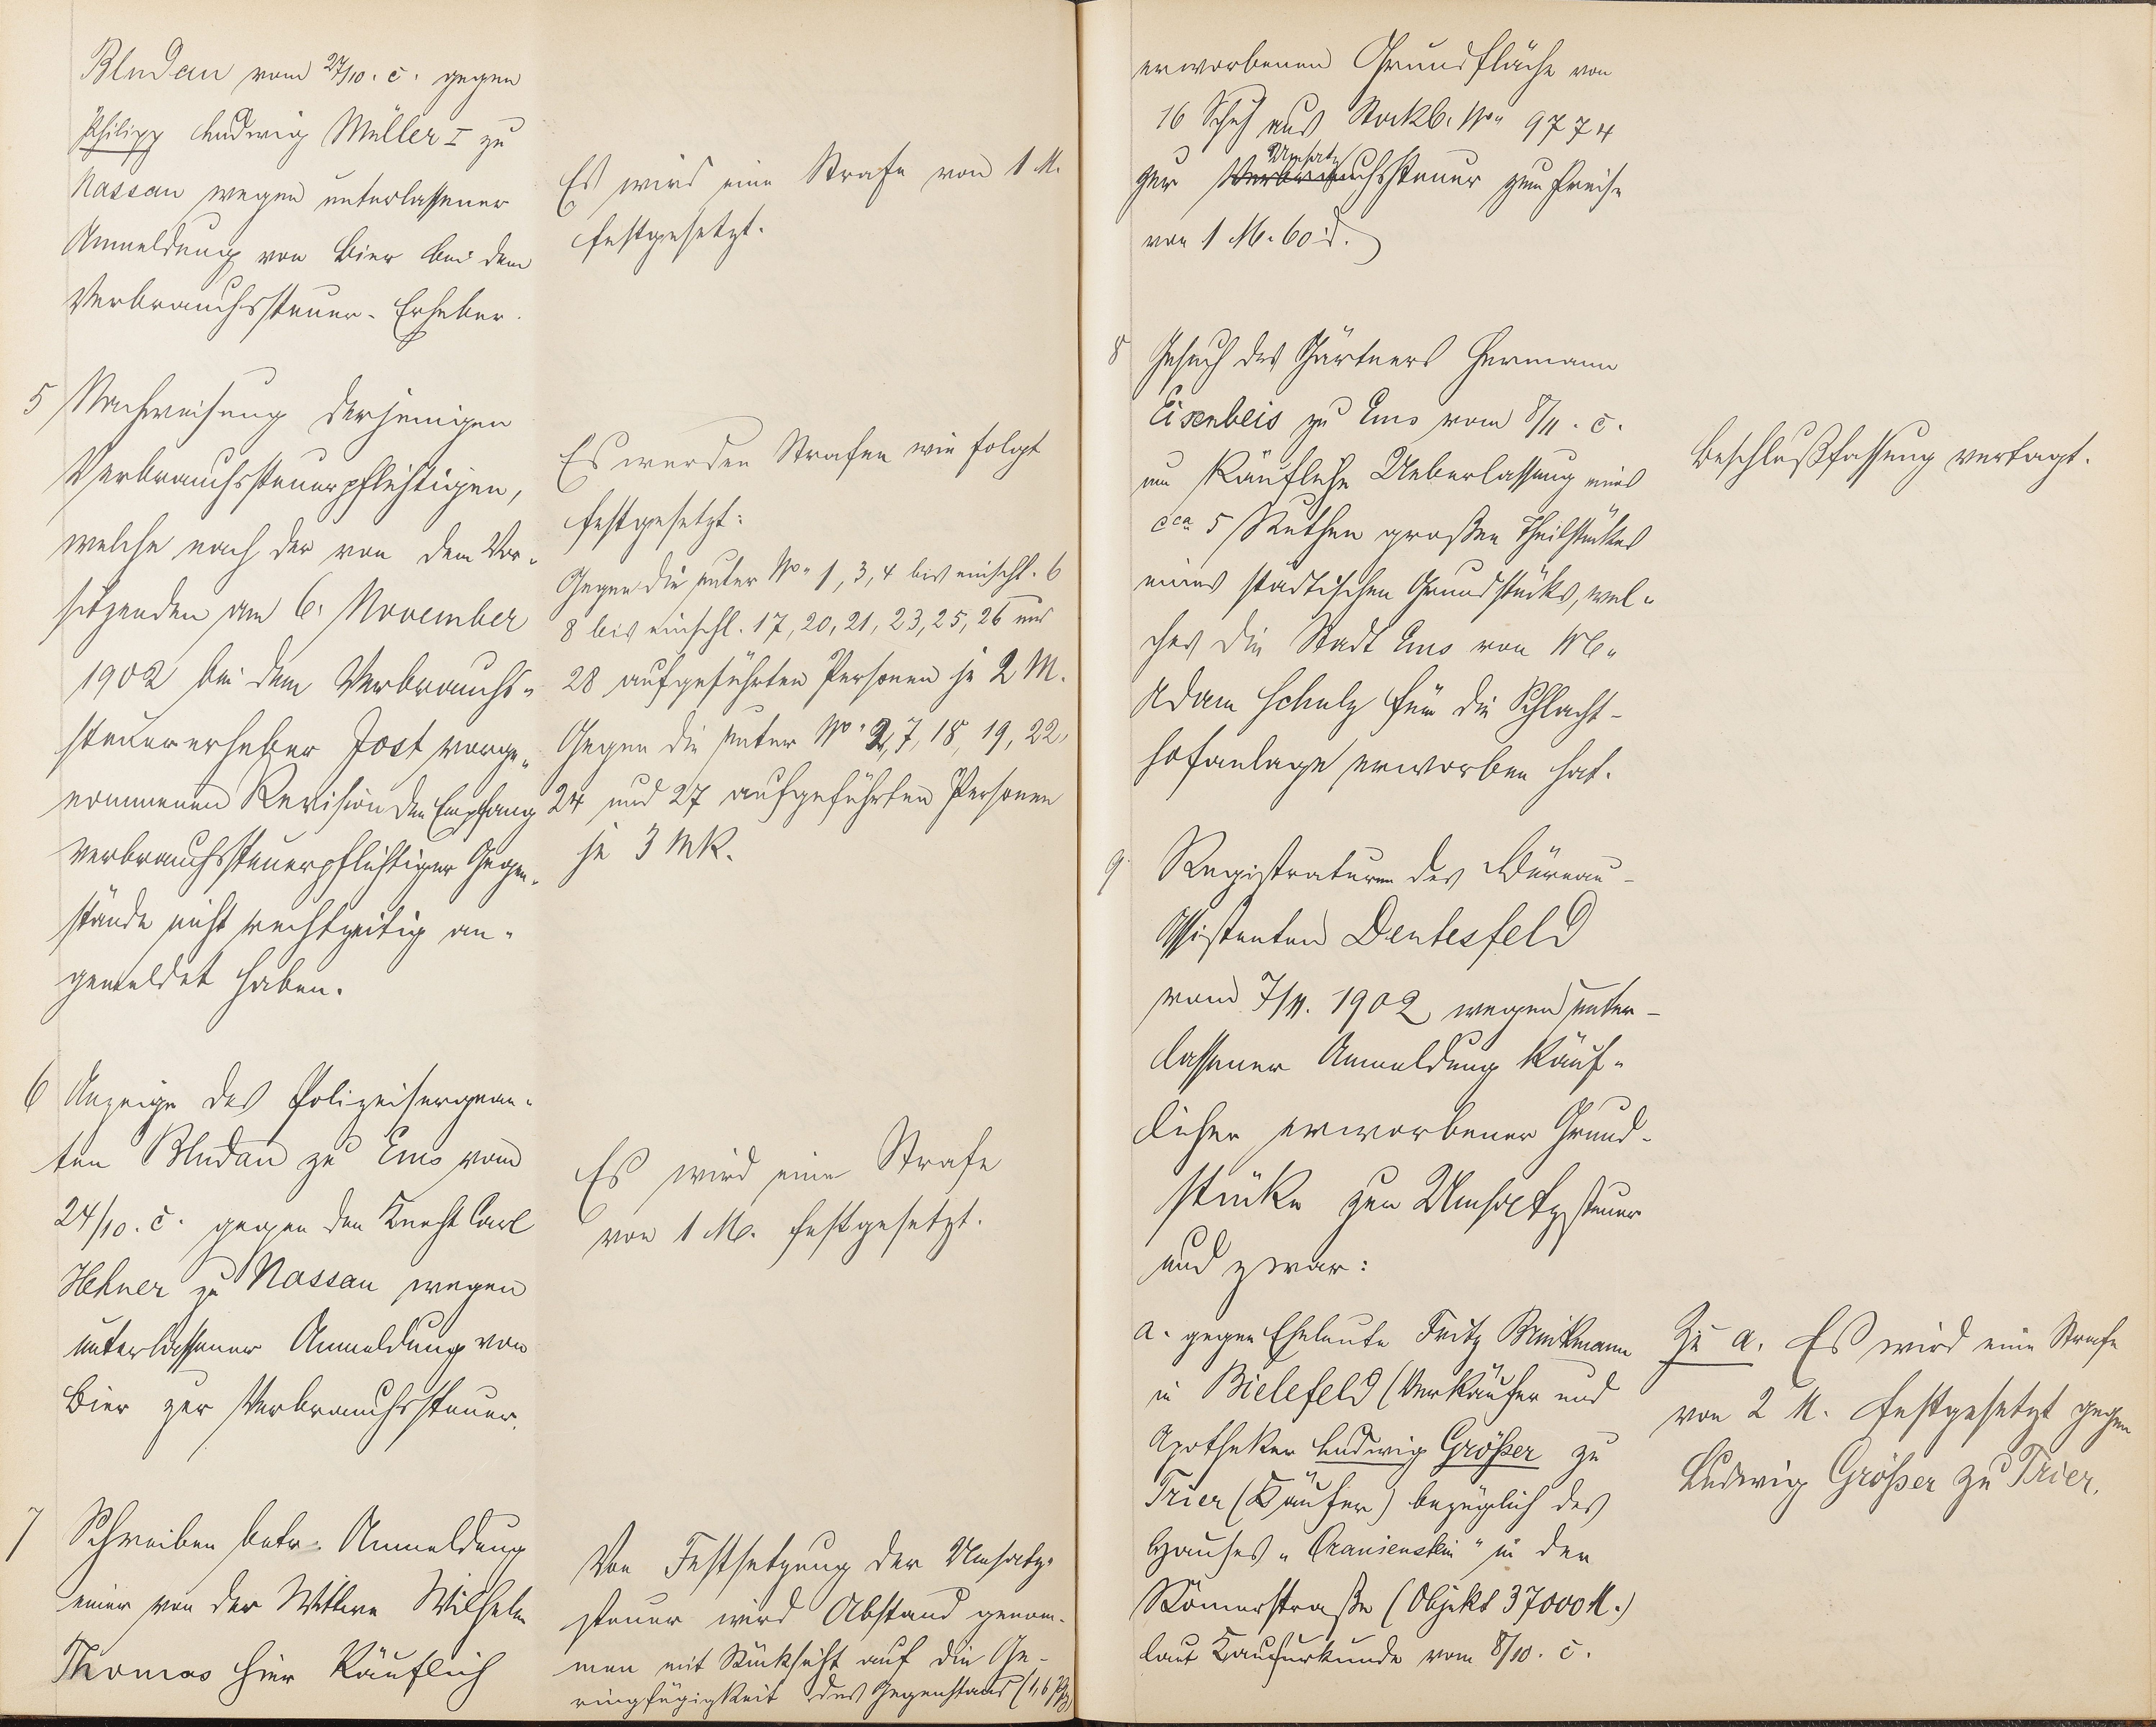 Bludau vom 27/10. c. gegen
Philipp Ludwig Müller I zu
Nassau wegen unterlassener
Anmeldung von Bier bei dem
Verbrauchssteuer-Erheber.
Es wird eine Strafe von 1 M.
festgesetzt.
5 Nachweisung derjenigen
Verbrauchssteuerpflichtigen,
welche nach der von dem Vor-
sitzenden am 6. November
1902 bei dem Verbrauchs-
steuererheber Jost vorge-
nommenen Revision den Empfang
verbrauchssteuerpflichtiger Gegen-
stände nicht rechtzeitig an-
gemeldet haben.
Es werden Strafen wie folgt
festgesetzt:
Gegen die unter No. 1, 3, 4 bis einschl. 6
8 bis einschl. 17, 20, 21, 23, 25, 26 und
28 aufgeführten Personen je 2 M.
Gegen die unter No. 2, 7, 18, 19, 22,
24 und 27 aufgeführten Personen
je 3 Mk.
6 Anzeige des Polizeisergean-
ten Bludau zu Ems vom
24/10. c. gegen den Knecht Carl
Hehner zu Nassau wegen
unterlassener Anmeldung von
Bier zur Verbrauchssteuer.
Es wird eine Strafe
von 1 M. festgesetzt.
7 Schreiben betr. Anmeldung
einer von der Wittwe Wilhelm
Thomas hier käuflich
Von Festsetzung der Umsatz-
steuer wird Abstand genom-
men mit Rücksicht auf die Ge-
ringfügigkeit des Gegenstands (1,6 Pfg)
erworbenen Grundfläche von
16 Schuh aus Stockb. No. 9774
Umsatz
zur Verbrauchssteuer zum Preise
von 1 M. 60 d.
8 Gesuch des Gärtners Hermann
Eisenbeis zu Ems vom 8/11. c.
um käufliche Ueberlassung eines
cca 5 Ruthen großen Theilstückes
eines städtischen Grundstücks, wel-
ches die Stadt Ems von
Adam Schulz für die Schlacht-
hofanlage erworben hat.
Beschlußfassung vertagt.
9 Registraturen des Büreau-
Assistenten Dentesfeld
vom 7/11. 1902 wegen unter-
lassener Anmeldung käuf-
licher erworbener Grund-
stücke zur Umsatzsteuer
und zwar:
a. gegen Eheleute Fritz
in Bielefeld (Verkäufer und
Apotheker Ludwig Größer zu
Trier (Käufer) bezüglich des
Hauses "Oranienstein" in der
Römerstraße (Objekt 37000 M.)
laut Kaufurkunde vom 8/10. c.
Zu a. Es wird eine Strafe
von 2 M. festgesetzt gegen
Ludwig Größer zu Trier.